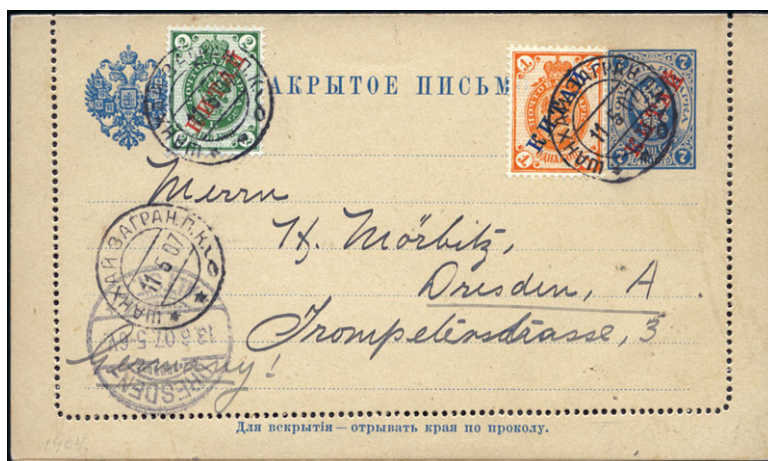 2 2
КИТАЙ
ЗАКРЫТОЕ ПИСЬМО
1 1
КИТАЙ
7 7
КИТАЙ
ШАНХАЙ ЗАГРАН.П.К.
11 5 07
Herrn
H. Mörbitz,
Dresden, A
Trompetenstrasse, 3
Germany!
ШАНХАЙ ЗАГРАН.П.К.
11 6 07
DRESDEN
13.6.07.5-6V
Для вскрытія — отрывать края по проколу.
1904.